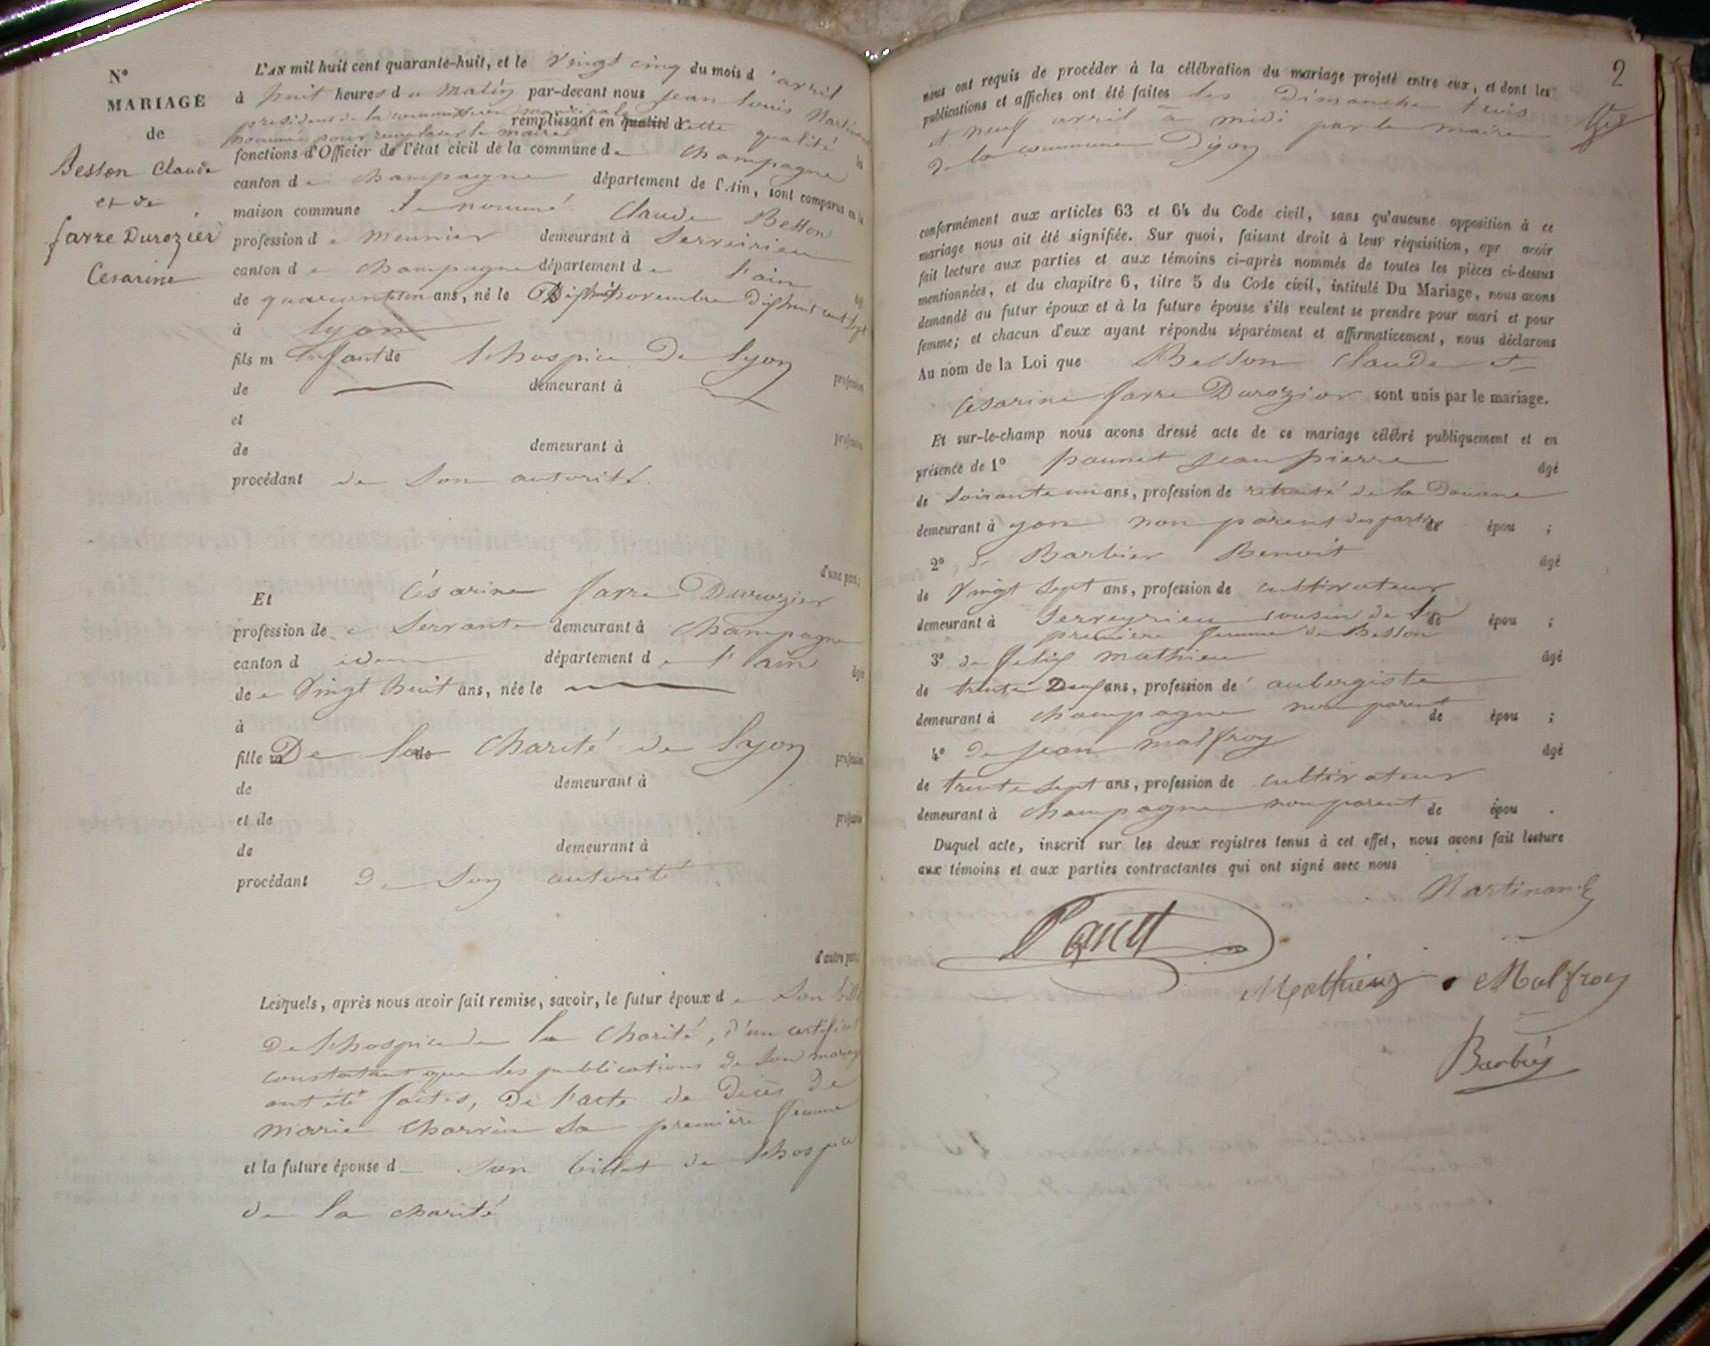 N°
MARIAGE
de
Besson Claude
et de
farre Durozier
Cesarine
L'AN mil huit cent quarante-huit, et le Vingt cinq du mois d'avril
à huit heures du Matin par-devant nous Jean Louis Martinand
président de la commission municipale
nommée pour remplacer le maire remplissant en qualité d cette qualité les
fonctions d'Officier de l'état civil de la commune de Champagne
canton de Champagne département de l'Ain, sont comparus en la
maison commune le nommé Claude Besson
profession de Meunier demeurant à Serveirieu
canton de Champagne département de l'ain âgé
de quarante un ans, né le Dishuit novembre Dishuit cent Sept
à Lyon
fils m Enfant de l'hospice de Lyon
de demeurant à profession
et
de demeurant à profession
procédant de Son autorité
d'une part;
Et Césarine farre Durozier
profession de Servante demeurant à Champagne
canton d idem département de l'ain
de Vingt huit ans, née le âgé
à
fille m De la de Charité de Lyon
de demeurant à profession
et de profession
de demeurant à
procédant de Son autorité
d'autre part;
Lesquels, après nous avoir fait remise, savoir, le futur époux de Son billet
De l'hospice de la Charité, d'un certificat
constatant que les publications de Son mariage
ont été faites, De l'acte de Décès de
Marie Charvin Sa première femme
et la future épouse d Son billet de l'hospice
de la charité
2
nous ont requis de procéder à la célébration du mariage projeté entre eux, et dont les
publications et affiches ont été faites les Dimanche trois
et neuf avril à midi par le maire
de la commune
conformément aux articles 63 et 64 du Code civil, sans qu'aucune opposition à ce
mariage nous ait été signifiée. Sur quoi, faisant droit à leur réquisition, apr avoir
fait lecture aux parties et aux témoins ci-après nommés de toutes les pièces ci-dessus
mentionnées, et du chapitre 6, titre 5 du Code civil, intitulé Du Mariage, nous avons
demandé au futur époux et à la future épouse s'ils veulent se prendre pour mari et pour
femme; et chacun d'eux ayant répondu séparément et affirmativement, nous déclarons
Au nom de la Loi que Besson Claude et
Césarine farre Durozier sont unis par le mariage.
Et sur-le-champ nous avons dressé acte de ce mariage célébré publiquement et en
présence de 1° Jean pierre âgé
de Soixante un ans, profession de retraité de la Douane
demeurant à yon non parent des parties de épou ;
2° Barbier Benoit âgé
de Vingt Sept ans, profession de cultivateur
demeurant à Serveyrieu cousin de la de épou ;
première femme de Besson
3° de felix Mathieu âgé
de trente Deux ans, profession de aubergiste
demeurant à Champagne non parent de épou ;
4° de Jean Malfroy âgé
de trente Sept ans, profession de cultivateur
demeurant à Champagne non parent de épou .
Duquel acte, inscrit sur les deux registres tenus à cet effet, nous avons fait lecture
aux témoins et aux parties contractantes qui ont signé avec nous
Martinand
Mathieu Malfroy
Barbier